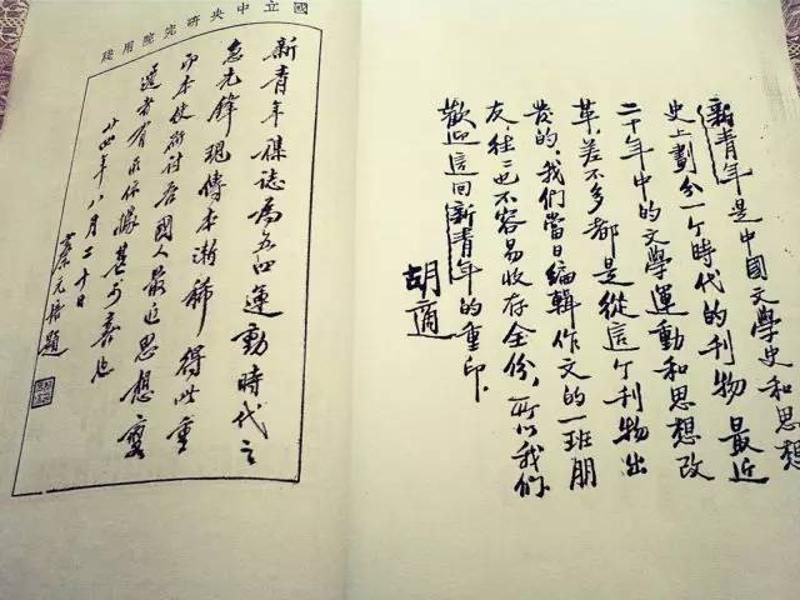 新青年是中國文學史和思想
史上劃分一个時代的刊物.最近
二十年中的文學運動和思想改
革,差不多都是從這个刊物出
發的.我們當日編輯作文的一班朋
友,往二也不容易收存全份,所以我們
歡迎這回新青年的重印.
胡適
國立中央研究院用牋
新青年襍誌為五四運動時代之
急先鋒現傳本漸稀得此重
印本使研討吾國人最近思想變
遷者有所依據甚可喜也
廿四年八月二十日
蔡元培題